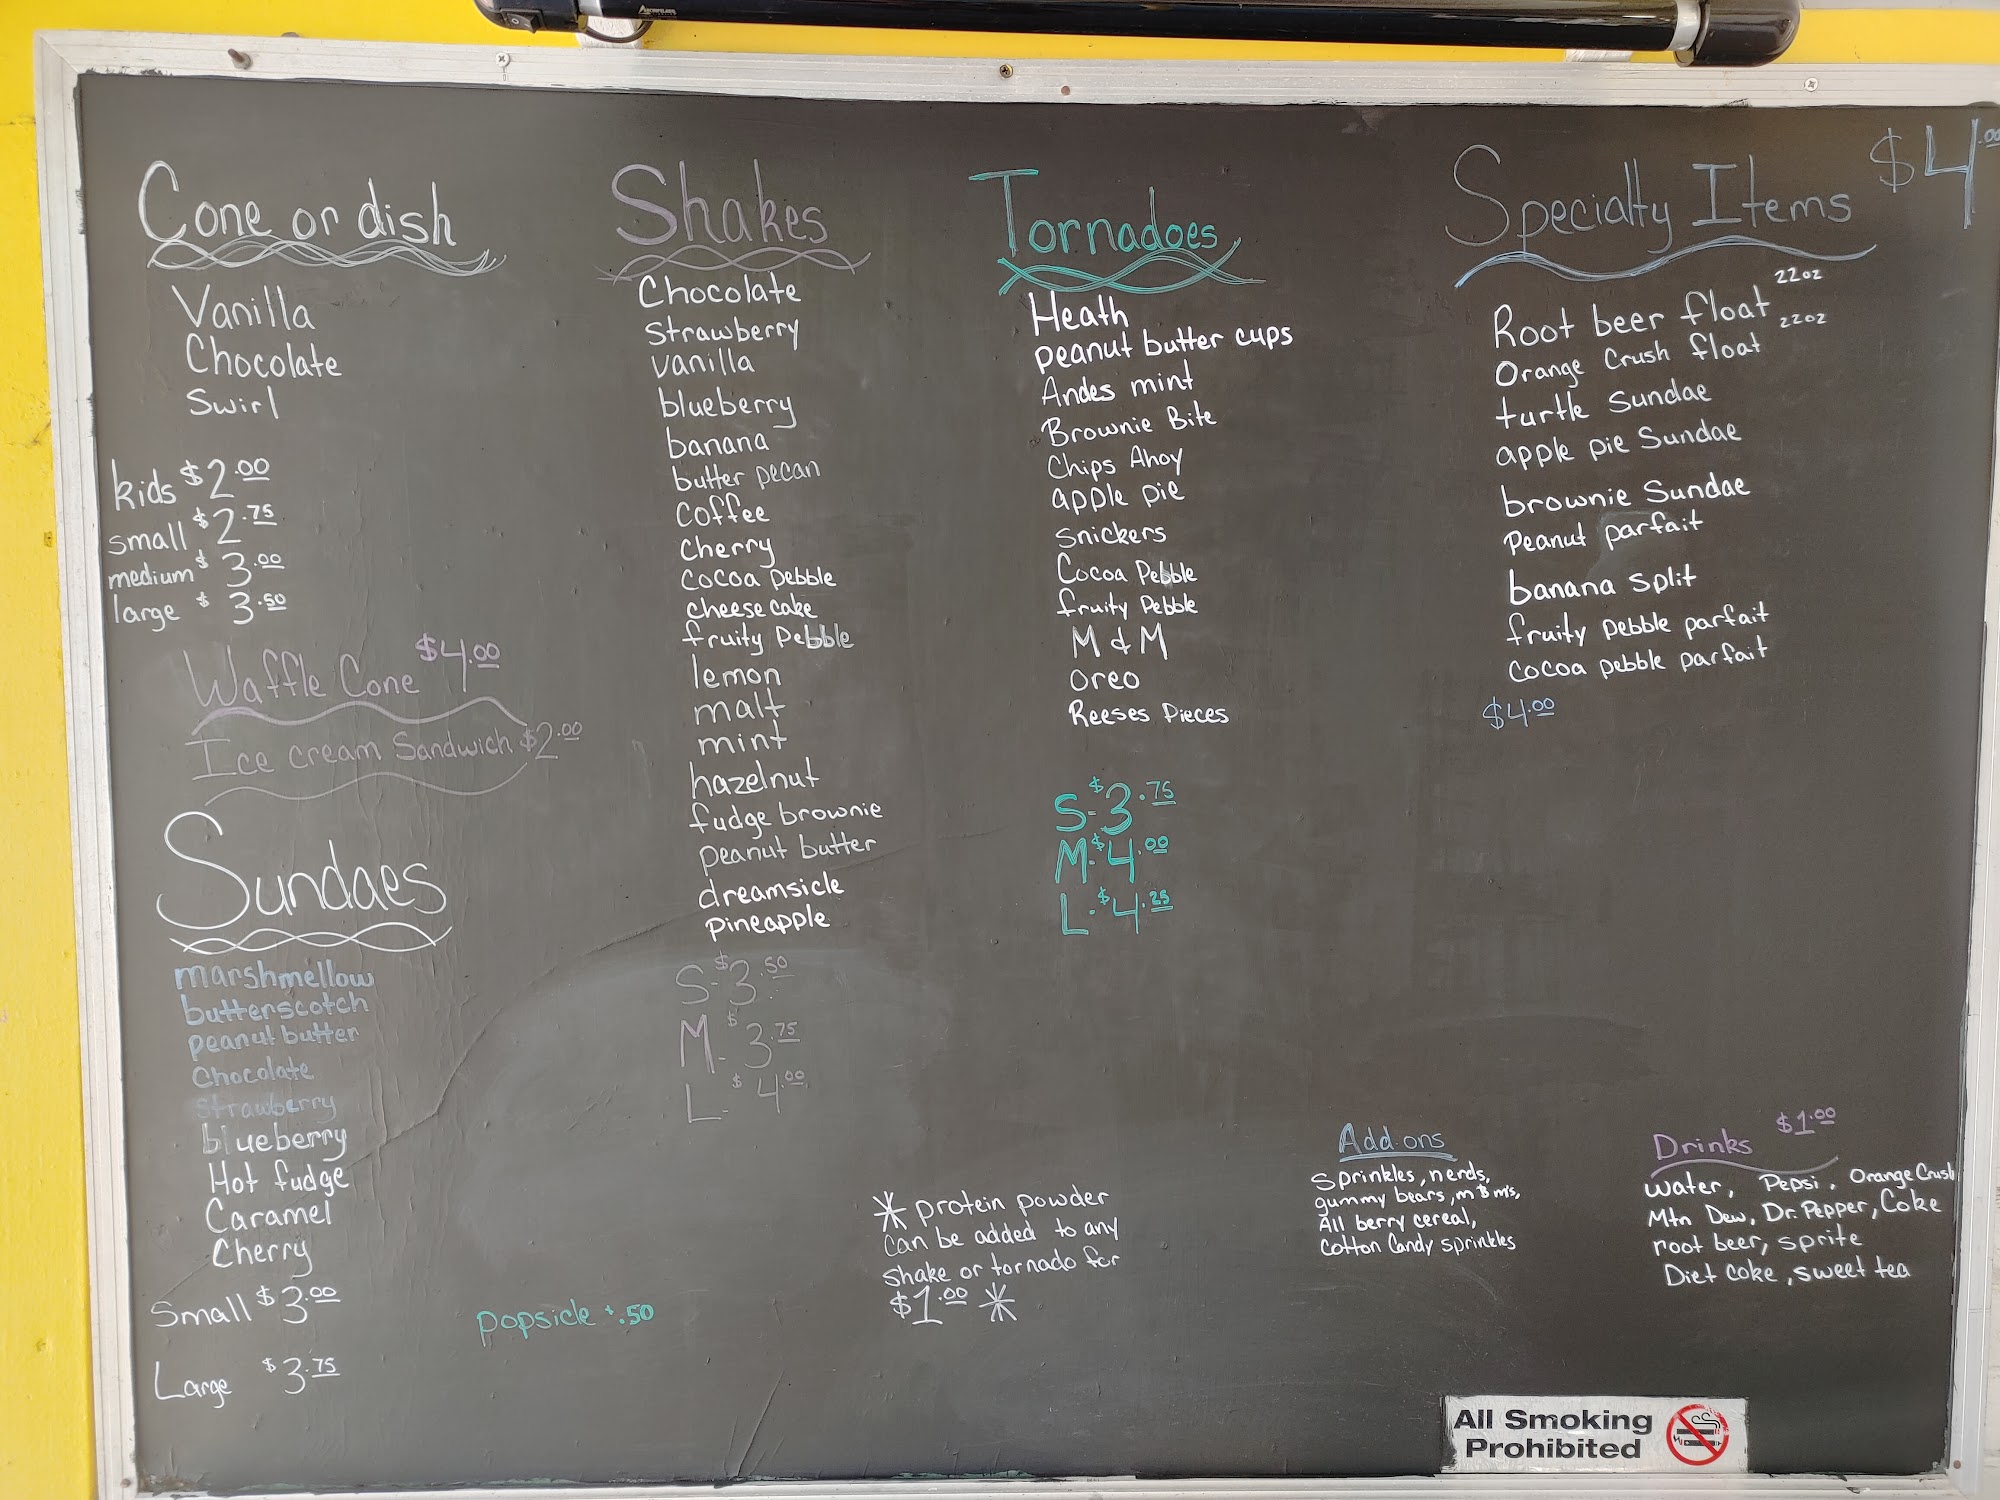 Cone or dish
Vanilla
Chocolate
Swirl
kids $2.00
small $2.75
medium $3.00
large $3.50
Waffle Cone $4.00
Ice cream Sandwich $2.00
Sundaes
marshmellow
butterscotch
peanut butter
Chocolate
Strawberry
blueberry
Hot fudge
Caramel
Cherry
Small $3.00
Large $3.75
popsicle $.50
Shakes
Chocolate
Strawberry
vanilla
blueberry
banana
butter pecan
Coffee
Cherry
Cocoa Pebble
Cheese cake
fruity Pebble
lemon
malt
mint
hazelnut
fudge brownie
peanut butter
dreamsicle
pineapple
S-$3.50
M-$3.75
L-$4.00
Tornadoes
Heath
peanut butter cups
Andes mint
Brownie Bite
Chips Ahoy
apple pie
Snickers
Cocoa Pebble
fruity Pebble
M & M
oreo
Reeses Pieces
S-$3.75
M-$4.00
L-$4.25
* protein powder
can be added to any
shake or tornado for
$1.00 *
Specialty Items $4.00
Root beer float 22oz
Orange Crush float 22oz
turtle Sundae
apple pie Sundae
brownie Sundae
Peanut parfait
banana split
fruity pebble parfait
Cocoa pebble parfait
$4.00
Add-ons
Sprinkles, nerds,
gummy bears, m&m's,
All berry cereal,
Cotton Candy sprinkles
Drinks $1.00
Water, Pepsi, Orange Crush
Mtn Dew, Dr. Pepper, Coke
root beer, sprite
Diet Coke, sweet tea
All Smoking
Prohibited